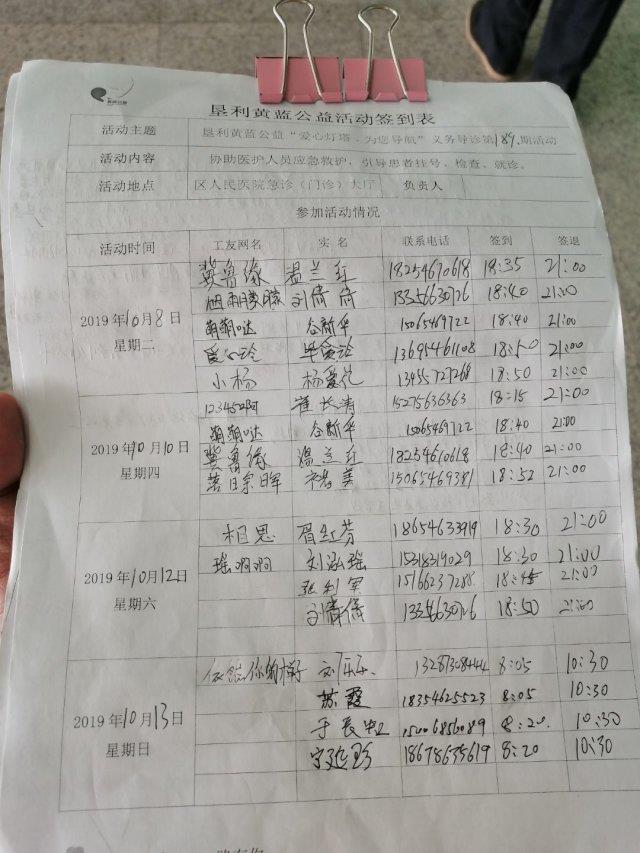 垦利黄蓝公益活动签到表
活动主题 垦利黄蓝公益“爱心灯塔·为您导航”义务导诊第189期活动
活动内容 协助医护人员应急救护，引导患者挂号、检查、就诊。
活动地点 区人民医院急诊（门诊）大厅 负责人
参加活动情况
活动时间 工友网名 实名 联系电话 签到 签退
冀鲁缘 温兰红 18254670618 18:35 21:00
刘倩倩 18:40 21:00
2019年10月8日 萌萌哒 谷新华 15065469722 18:40 21:00
星期二 爱心玲 13695461108 18:50 21:00
小杨 杨爱花 13455727268 18:50 21:00
123452啊 崔长清 15275636363 18:15 21:00
萌萌哒 谷新华 15065469722 18:40 21:00
2019年10月10日 冀鲁缘 温兰红 18254610618 18:40 21:00
星期四 落日余晖 15065469381 18:52 21:00
相思 18654633919 18:30 21:00
2019年10月12日 瑶啊啊 刘泓瑶 15318319029 18:30 21:00
星期六 张利军 15166237288 18:45 21:00
刘倩倩 18:50 21:00
依然你的样子 刘乐乐 13287308444 8:05 10:30
苏霞 18354625523 8:05 10:30
2019年10月13日 8:20 10:30
星期日 18678655619 8:20 10:30